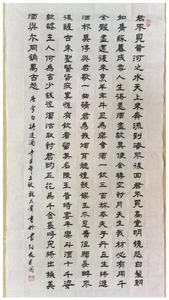 君不見黃河之水天上來奔流到海不復回君不見高堂明鏡悲白髮朝
如青絲暮成雪人生得意須盡歡莫使金樽空對月天生我材必有用千
金散盡還復來烹羊宰牛且爲樂會須一飲三百杯岑夫子丹丘生將進
酒杯莫停與君歌一曲請君爲我傾耳聽鐘鼓饌玉不足貴但願長醉不
願醒古來聖賢皆寂寞惟有飲者留其名陳王昔時宴平樂斗酒十千恣
歡謔主人何爲言少錢徑須沽取對君酌五花馬千金裘呼兒將出換美
酒與爾同銷萬古愁 唐李白將進酒